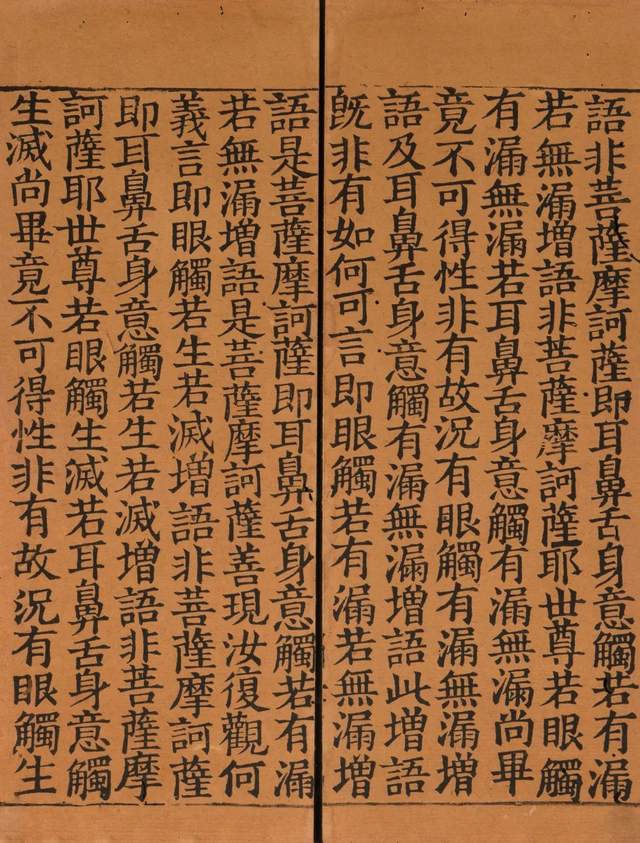 語非菩薩摩訶薩即耳鼻舌身意觸若有漏
若無漏增語非菩薩摩訶薩耶世尊若眼觸
有漏無漏若耳鼻舌身意觸有漏無漏尚畢
竟不可得性非有故況有眼觸有漏無漏增
語及耳鼻舌身意觸有漏無漏增語此增語
旣非有如何可言即眼觸若有漏若無漏增
語是菩薩摩訶薩即耳鼻舌身意觸若有漏
若無漏增語是菩薩摩訶薩善現汝復觀何
義言即眼觸若生若滅增語非菩薩摩訶薩
即耳鼻舌身意觸若生若滅增語非菩薩摩
訶薩耶世尊若眼觸生滅若耳鼻舌身意觸
生滅尚畢竟不可得性非有故況有眼觸生